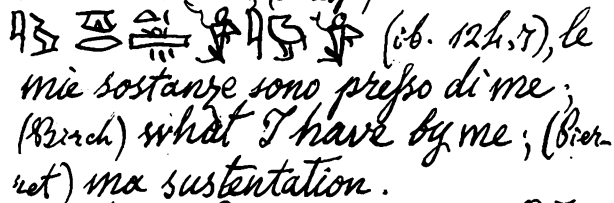 (ib. 124,7), le
mie sostanze sono presso di me;
(Birch) what I have by me; (Pier-
ret) ma sustentation.